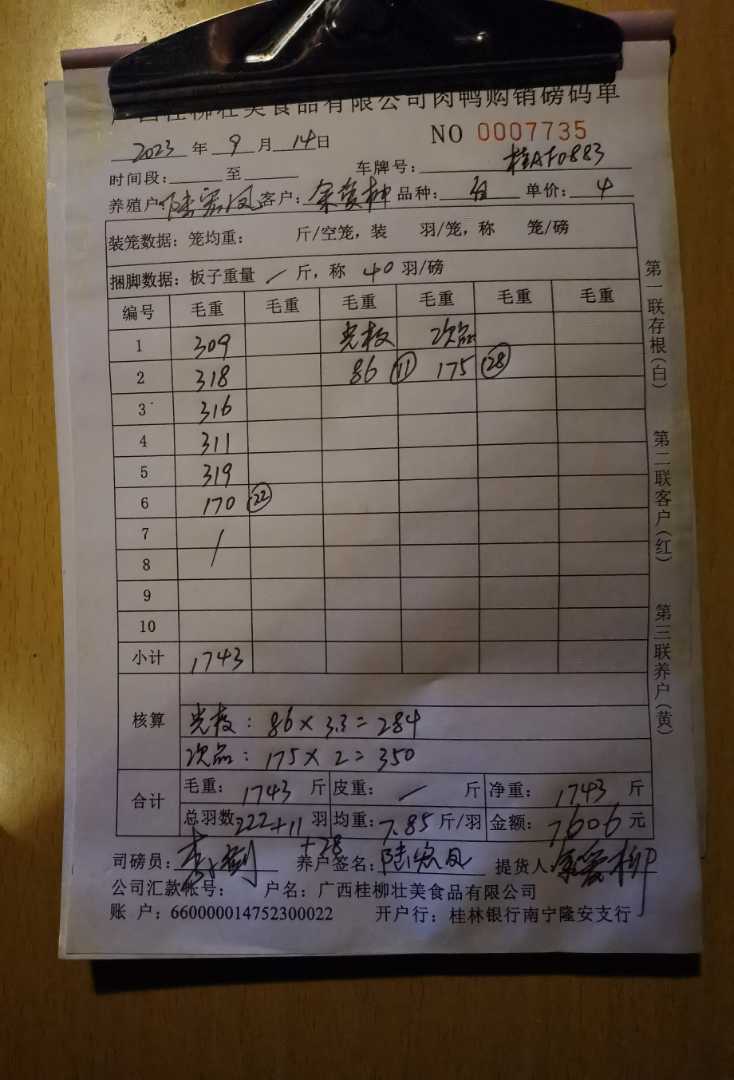 广西桂柳壮美食品有限公司肉鸭购销磅码单
2023 年 9 月 14日 NO 0007735
时间段: 至 车牌号: 桂AF0883
养殖户 客户: 品种: 单价: 4
装笼数据: 笼均重: 斤/空笼, 装 羽/笼, 称 笼/磅
捆脚数据: 板子重量 / 斤, 称 40 羽/磅
编号 毛重 毛重 毛重 毛重 毛重 毛重
1 309 次品
2 318 86 ⑪ 175 ㉘
3 316
4 311
5 319
6 170 ㉒
7 /
8
9
10
小计 1743
核算
: 86×3.3=284
次品: 175×2=350
合计
毛重: 1743 斤 皮重: / 斤 净重: 1743 斤
总羽数 222+11 羽 均重: 7.85 斤/羽 金额: 7606 元
+28
司磅员: 养户签名: 提货人
公司汇款帐号: 户名: 广西桂柳壮美食品有限公司
账 户: 660000014752300022 开户行: 桂林银行南宁隆安支行
第一联存根(白)
第二联客户(红)
第三联养户(黄)